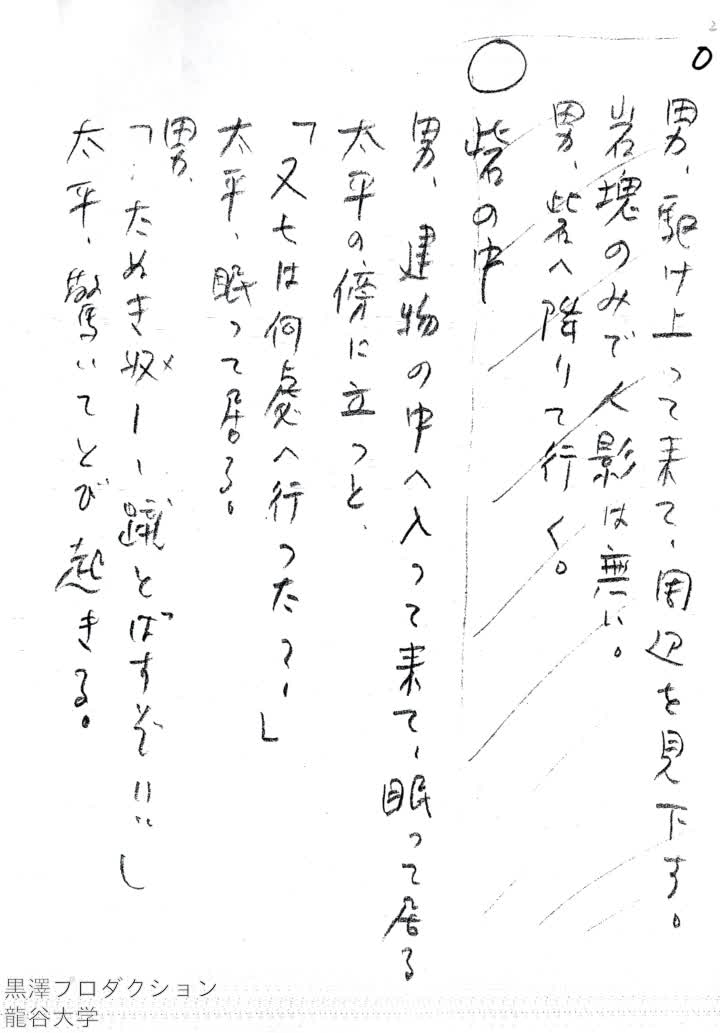 2
男、駆け上って来て、周辺を見下す。
岩塊のみで人影は無い。
男、砦へ降りて行く。
○ 砦の中
男、建物の中へ入って来て、眠って居る
太平の傍に立つと、
「又七は何處へ行った?」
太平、眠って居る。
男、
「たぬき奴!!蹴とばすぞ!!」
太平、驚いてとび起きる。
黒澤プロダクション
龍谷大学